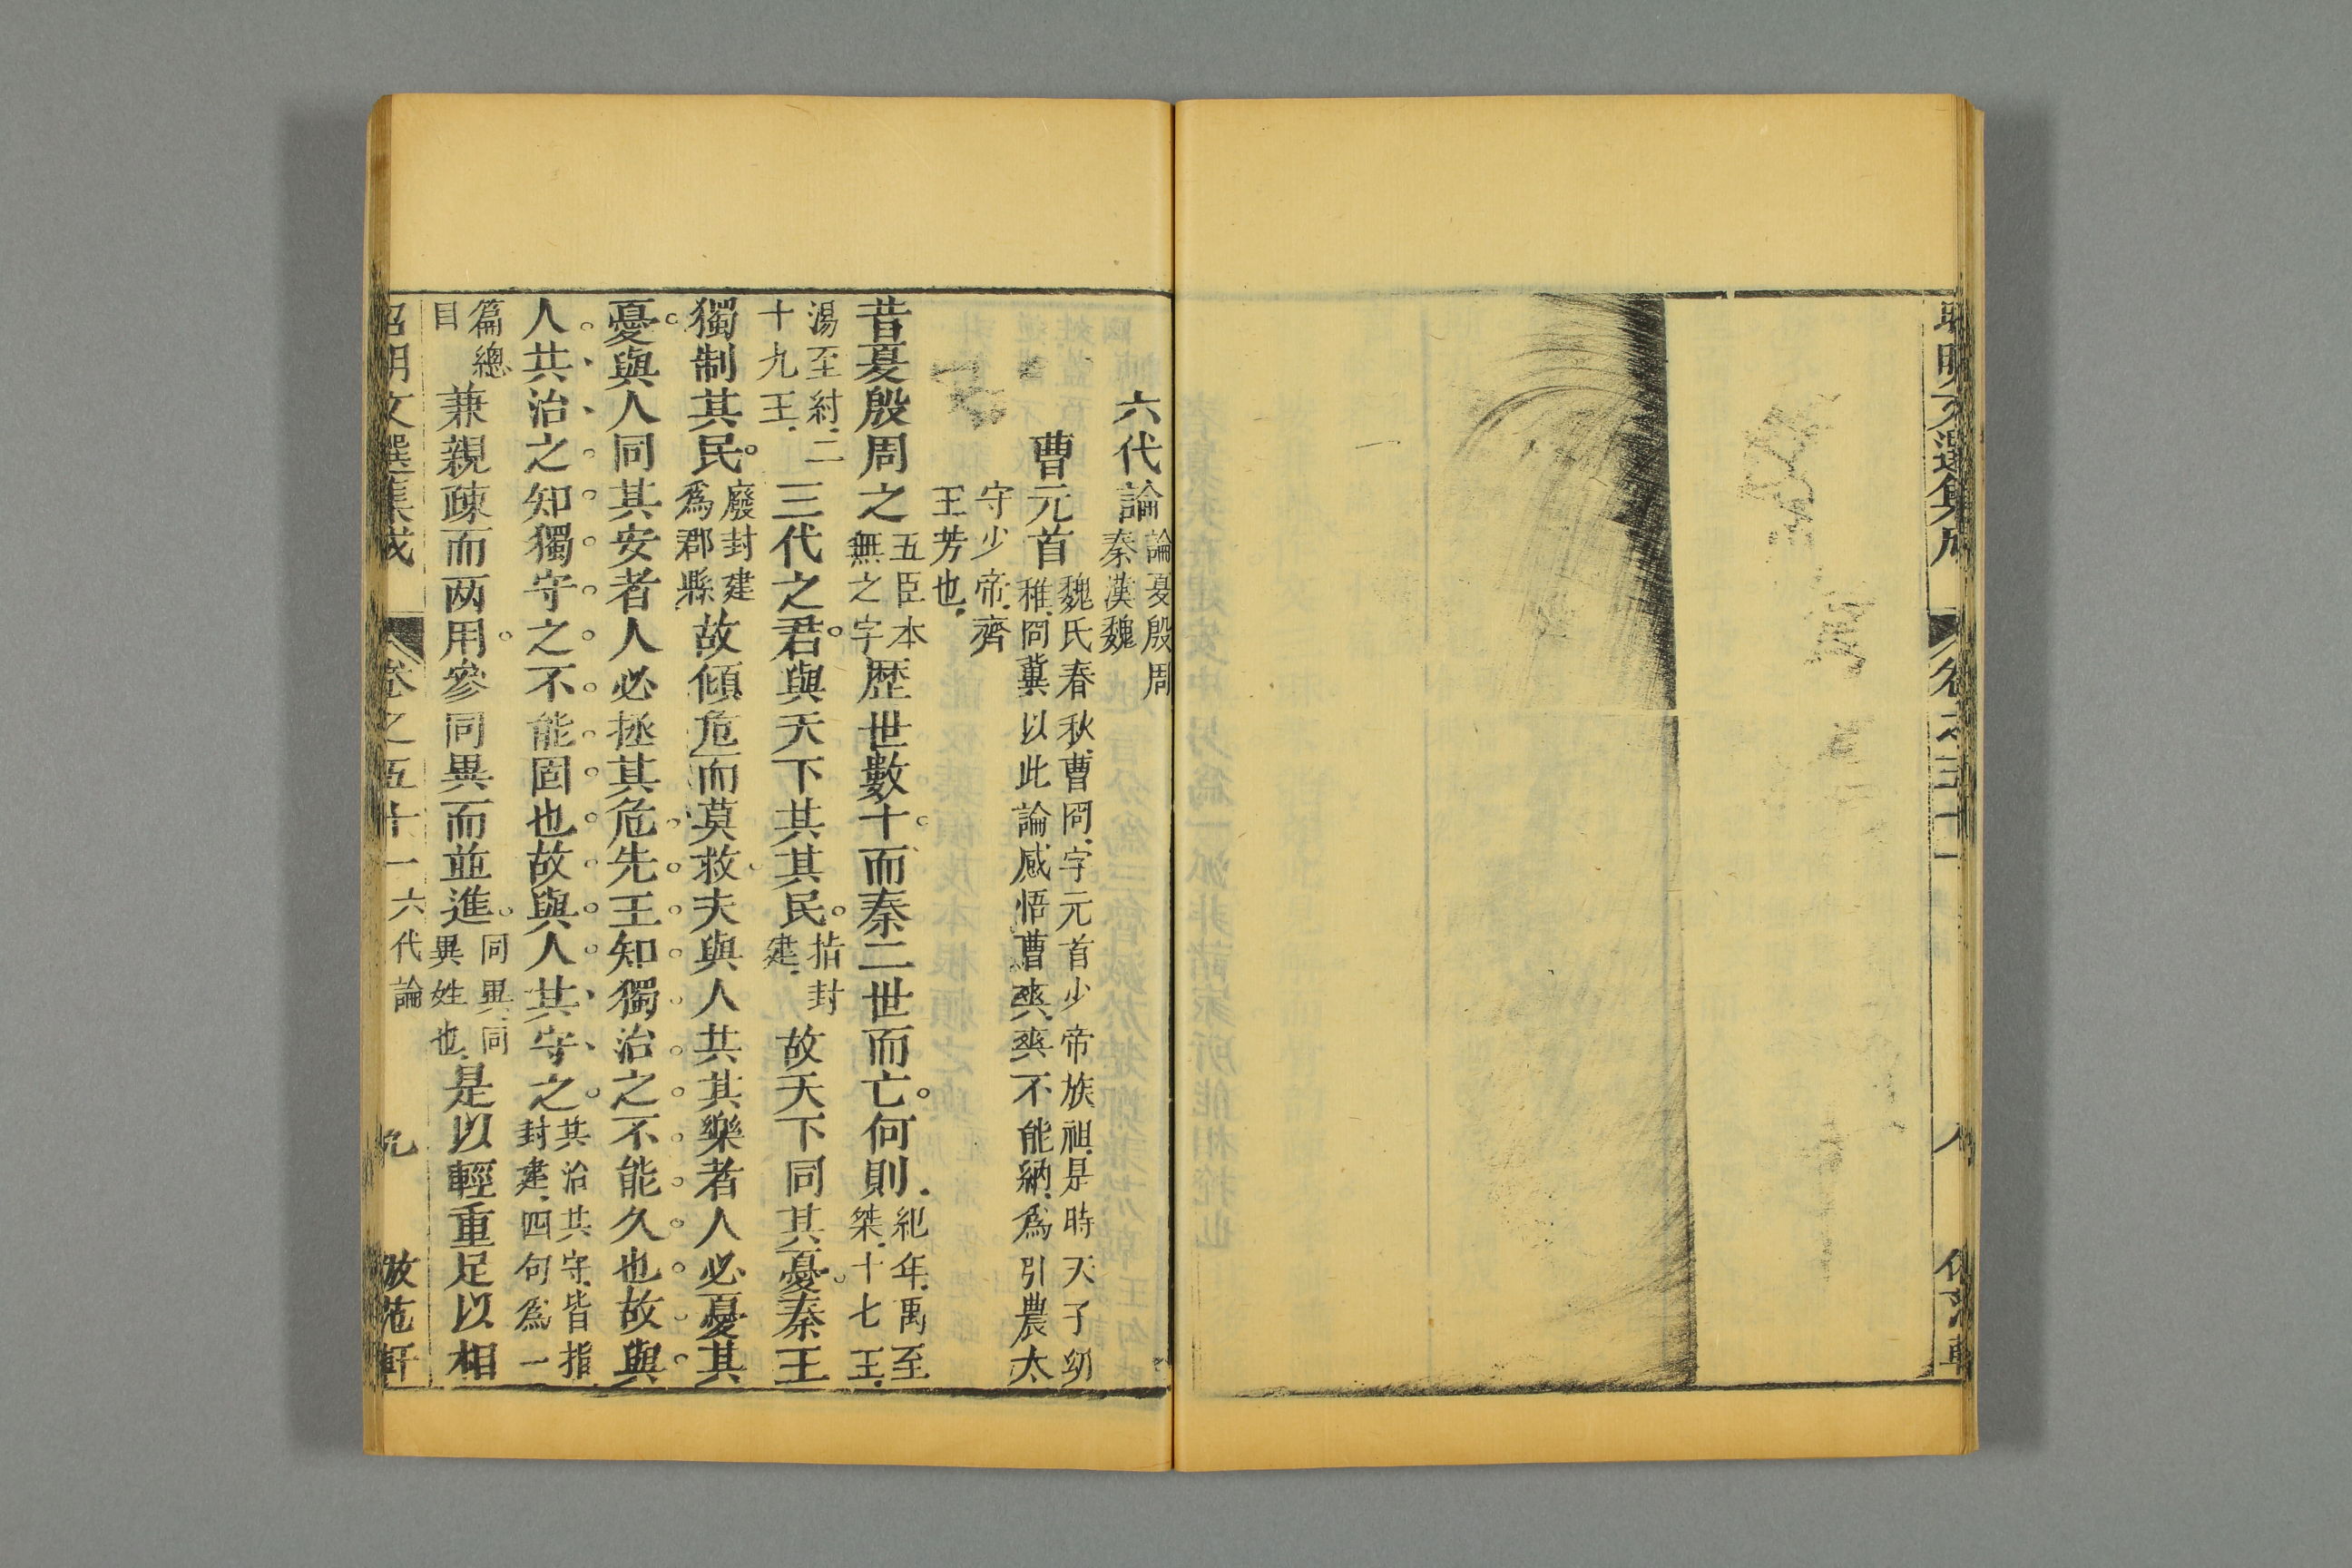 昭明文選集成 卷之五十一 八
六代論 論夏殷周
秦漢魏
曹元首 魏氏春秋曹冏字元首少帝族祖是時天子幼
稚冏冀以此論感悟曹爽爽不能納為引農太
守少帝齊
王芳也
昔夏殷周之 五臣本
無之字 歷世數十而秦二世而亡何則 紀年禹至
桀十七王
湯至紂二
十九王 三代之君與天下共其民 指封
建 故天下同其憂秦王
獨制其民 廢封建
為郡縣 故傾危而莫救夫與人共其樂者人必憂其
憂與人同其安者人必拯其危先王知獨治之不能久也故與
人共治之知獨守之不能固也故與人共守之 共治共守皆指
封建四句為一
篇總
目 兼親疎而两用參同異而並進 同異同
異姓也 是以輕重足以相
昭明文選集成 卷之五十一 六代論 九 倣范軒